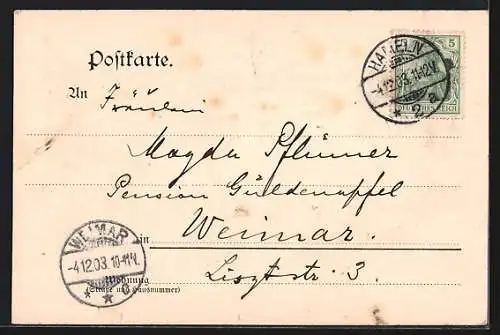 Postkarte.
HAMELN
-4.12.03.11-12V.
* 2a
5
DEUTSCHES REICH
An Fräulein
Magda Pflümer
Pension Güldenapfel
in Weimar.
WEIMAR
-4.12.03.10-11V.
* *
Lisztstr. 3.
Wohnung
(Straße und Hausnummer)